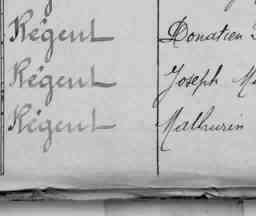 Régent Donatien
Régent Joseph
Régent Mathurin